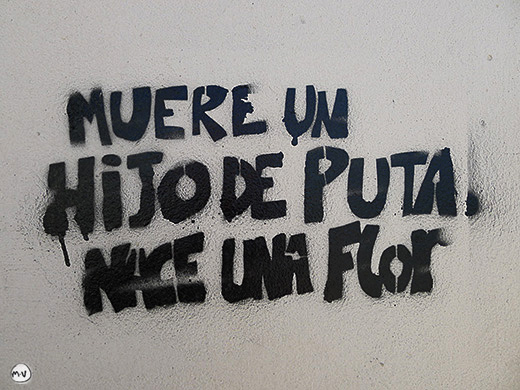 MUERE UN
HiJO DE PUTA.
NACE UNA FlOR
M.V